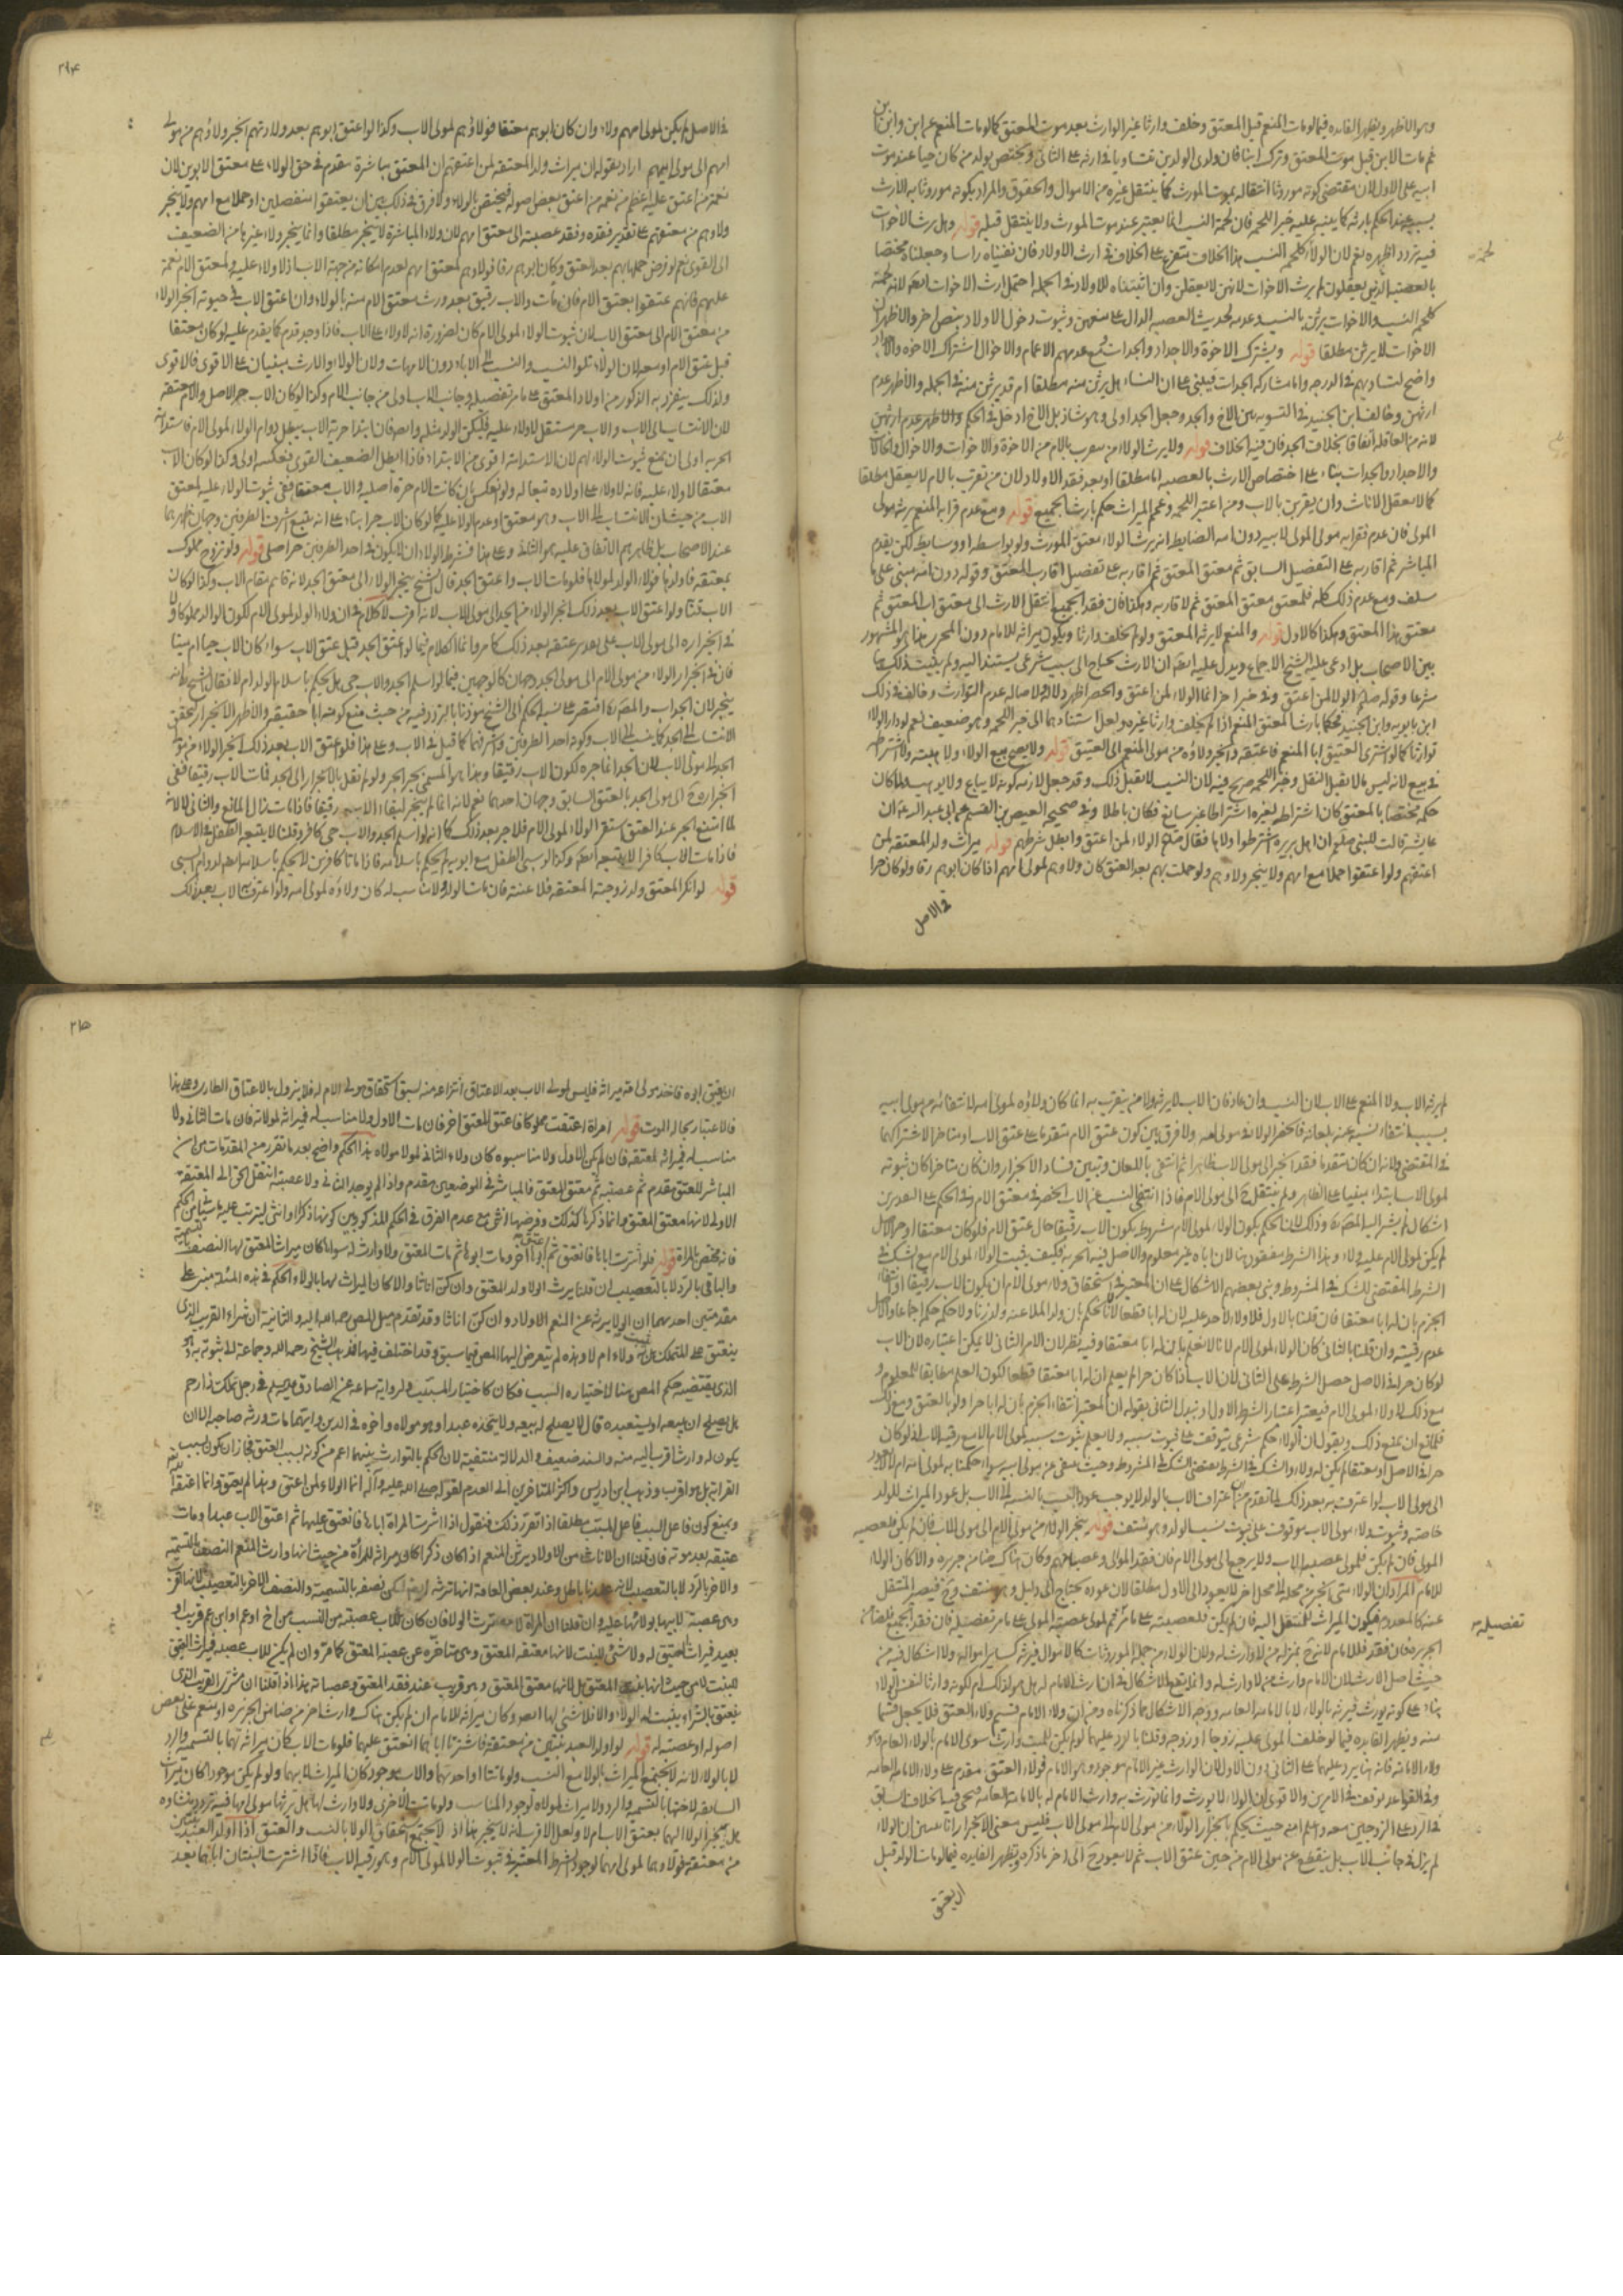 وهو الاظهر ويظهر الفايده فيما لو مات المنعم قبل المعتق وخلف وارثا غير الوارث بعد موت المعتق كما لو مات المنعم عن ابن وابن ابن
ثم مات الابن قبل موت المعتق وترك ابنا فان ولدى الولدين يتساويا في ارثه على الثاني ويختص بولد من كان حيا عند موت
ابيه على الاول لان مقتضى كونه موروثا انتقاله بموت المورث كما ينتقل غيره من الاموال والحقوق والمراد بكونه موروثا به الارث
بسببه عند الحكم بارثه كما ينبه عليه خبر اللحمه فان لحمة النسب انما يعتبر عند موت المورث ولا ينتقل قبله قوله وهل يرث الاخوات
فيه تردد اظهره نعم لان الولاء كلحمه النسب هذا الخلاف متفرع على الخلاف في ارث الاولاد فان نفيناه راسا وجعلناه مختصا
لحمة
بالعصبه الذين يعقلون لم يرث الاخوات لانهن لا يعقلن وان اثبتناه للاولاد في الجمله احتمل ارث الاخوات ايضا لانه لحمة
كلحمه النسب والاخوات يرثن بالنسب وعدمه لحديث العصبه الدال على منعهن وثبوت دخول الاولاد بنص اخر والاظهر ان
الاخوات لا يرثن مطلقا قوله ويشترك الاخوة والاجداد والجدات ومع عدمهم الاعمام والاخوال اشتراك الاخوه والاجداد
واضح لتساويهم في الدرجه واما مشاركه الجدات فيبنى على ان النساء هل يرثن منه مطلقا ام قد يرثن منه في الجمله والاظهر عدم
ارثهن وخالف ابن الجنيد في التسويه بين الاخ والجد وجعل الجد اولى وهو شاذ بل الاخ ادخل في الحكم والاظهر عدم ارثهن
لانه من العاقله اتفاقا بخلاف الجد فان فيه الخلاف قوله ولا يرث الولاء من يتقرب بالام من الاخوة والاخوات والاخوال والخالات
والاجداد والجدات بناء على اختصاص الارث بالعصبه اما مطلقا او بعد فقد الاولاد لان من تقرب بالام لا يعقل مطلقا
كما لا يعقل الاناث وان يقربن بالاب ومن اعتبر اللحمه وعمم الميراث حكم بارث الجميع قوله ومع عدم قرابه المنعم يرثه مولى
المولى فان عدم فقرابه مولى المولى لابيه دون امه الضابط انه يرث الولاء معتق المورث ولو بواسطه او وسايط لكن يقدم
المباشر ثم اقاربه على التفصيل السابق ثم معتق المعتق ثم اقاربه على تفصيل اقارب المعتق وقوله دون امه مبنى على ما
سلف ومع عدم ذلك كله فلمعتق معتق المعتق ثم لاقاربه وهكذا فان فقد الجميع انتقل الارث الى معتق اب المعتق ثم
معتق هذا المعتق وهكذا كالاول قوله والمنعم لا يرثه المعتق ولو لم يخلف وارثا ويكون ميراثه للامام دون المحرر هذا هو المشهور
بين الاصحاب بل ادعى عليه الشيخ الاجماع ويدل عليه ايضا ان الارث يحتاج الى سبب شرعي يستند اليه ولم يثبت ذلك هنا
شرعا وقوله صلم الولاء لمن اعتق وفي خبر اخر انما الولاء لمن اعتق والحصر اظهر دلاله ولاصاله عدم التوارث وخالف في ذلك
ابن بابويه وابن الجنيد فحكما بارث المعتق المنعم اذا لم يخلف وارثا غيره ولعل استنادهما الى خبر اللحمه وهو ضعيف نعم لو دار الولاء
توارثا كما لو اشترى العتيق ابا المنعم فاعتقه وانجر ولاؤه من مولى المنعم الى العتيق قوله ولا يصح بيع الولاء ولا هبته ولا اشتراطه
في بيع لانه ليس مالا يقبل النقل وخبر اللحمه صريح فيه لان النسب لا يقبل ذلك وقد جعل لازمه كونه لا يباع ولا يوهب ولما كان
حكمه مختصا بالمعتق كان اشتراطه لغيره اشتراطا غير سايغ فكان باطلا وفي صحيحه العيص بن القسم عن ابي عبد الله ع ان
عايشه قالت للنبي صلم ان اهل بريره اشترطوا ولاها فقال صلم الولاء لمن اعتق وابطل شرطهم قوله ميراث ولد المعتقه لمن
اعتقهم ولو اعتقوا حملا مع امهم ولا ينجر ولاوهم ولو حملت بهم بعد العتق كان ولاوهم لمولى امهم اذا كان ابوهم رقا ولو كان حرا
في الاصل
٢٩٤
في الاصل لم يكن لمولى امهم ولاء وان كان ابوهم معتقا فولاؤهم لمولى الاب وكذا لو اعتق ابوهم بعد ولادتهم انجر ولاؤهم من مولى
امهم الى مولى ابيهم اراد بقوله ان ميراث ولد المعتقه لمن اعتقهم ان المعتق مباشرة مقدم في حق الولاء على معتق الابوين لان
نعمة من اعتق عليه اعظم من نعمه من اعتق بعض اصوله فيختص بالولاء ولا فرق في ذلك بين ان يعتقوا منفصلين او حملا مع امهم ولا ينجر
ولاوهم من معتقهم على تقدير فقده وفقد عصبته الى معتق امهم لان ولاء المباشرة لا ينجر مطلقا وانما ينجر ولاء غيرها من الضعيف
الى القوى نعم لو فرض حملها بهم بعد العتق وكان ابوهم رقا فولاوهم لمعتق امهم لعدم امكانه من جهة الاب اذ لا ولاء عليه ولمعتق الام نعمة
عليهم فانهم عتقوا بعتق الام فان مات والاب رقيق بعد ورث معتق الام منه بالولاء وان اعتق الاب في حيوته انجر الولاء
من معتق الام الى معتق الاب لان ثبوت الولاء لمولى الام كان لضرورة انه لا ولاء على الاب فاذا وجد قدم كما يقدم عليه لو كان معتقا
قبل عتق الام او معه لان الولاء تلو النسب والنسب الى الاباء دون الامهات ولان الولاء والارث يبنيان على الاقوى فالاقوى
ولذلك ينفرد به الذكور من اولاد المعتق على ما مر تفصيله وجانب الاب اولى من جانب الام وكذا لو كان الاب حر الاصل والام معتقه
لان الانتساب الى الاب والاب حر مستقل لا ولاء عليه فليكن الولد مثله وايضا فان ابتدا حرية الاب يبطل دوام الولاء لمولى الام فاستدامة
الحريه اولى ان تمنع ثبوت الولاء لهم لان الاستدامة اقوى من الابتداء فاذا ابطل الضعيف القوى فعكسه اولى وكذا لو كان الاب
معتقا لا ولاء عليه فانه لا ولاء على اولاده تبعا له ولو انعكس بان كانت الام حرة اصليه والاب معتقا ففي ثبوت الولاء عليه لمعتق
الاب من حيث ان الانتساب الى الاب وهو معتق او عدم الولاء عليه كما لو كان الاب حرا بناء على انه يتبع اشرف الطرفين وجهان اظهرهما
عند الاصحاب بل ظاهرهم الاتفاق عليه هو الثاني وعلى هذا فشرط الولاء ان لا يكون في احد الطرفين حر اصلي قوله ولو تزوج مملوك
بمعتقه فاولدها فولاء الولد لمولاها فلو مات الاب واعتق الجد قال الشيخ ينجر الولاء الى معتق الجد لانه قايم مقام الاب وكذا لو كان
الاب قنا ولو اعتق الاب بعد ذلك انجر الولاء من الجد الى مولى الاب لانه اقرب لا كلام في ان ولاء الولد لمولى الام لكون الوالد مملوكا ولا
في انجراره الى مولى الاب على تقدير عتقه بعد ذلك كما مر وانما الكلام فيما لو اعتق الجد قبل عتق الاب سواء كان الاب حيا ام ميتا
فان في انجرار الولاء من مولى الام الى مولى الجد وجهان كالوجهين فيما لو اسلم الجد والاب حي هل يحكم باسلام الولد ام لا فقال الشيخ ره انه
ينجر لان الجد اب والمصنف ره اقتصر على نسبه الحكم الى الشيخ مؤذنا بالتردد فيه من حيث منع كونه ابا حقيقه والاظهر الانجرار لتحقق
الانتساب الى الجد كما ينسب الى الاب وكونه احد الطرفين واشرفهما كما قيل في الاب وعلى هذا فلو اعتق الاب بعد ذلك انجر الولاء من مولى
الجد الى مولى الاب لان الجد انما جره لكون الاب رقيقا وهذا هو المسمى بجر الجر ولو لم نقل بالانجرار الى الجد فمات الاب رقيقا ففى
انجراره ح الى مولى الجد بالعتق السابق وجهان احدهما نعم لانه انما لم ينجر لبقاء الاب رقيقا فاذا مات زال المانع والثاني لا لانه
لما امتنع الجر عند العتق استقر الولاء لمولى الام فلا جر بعد ذلك كما انه لو اسلم الجد والاب حي كافر وقلنا لا يتبعه الطفل في الاسلام
فاذا مات الاب كافرا لا يتبعه ايضا وكذا لو سبى الطفل مع ابويه لم يحكم باسلامه فاذا ماتا كافرين لا يحكم باسلامه ايضا لدوام السبى
قوله لو انكر المعتق ولد زوجته المعتقه فلاعنته فان مات الولد ولا مناسب له كان ولاؤه لمولى امه ولو اعترف به الاب بعد ذلك
لم يرثه الاب ولا المنعم على الاب لان النسب وان عاد فان الاب لا يرثه ولا من يتقرب به انما كان ولاؤه لمولى امه لانتفائه من مولى ابيه
بسبب انتفاء نسبه عنه بلعانه فانحصر الولاء في مولى امه ولا فرق بين كون عتق الام متقدما على عتق الاب او متاخرا لاشتراكهما
في المقتضى ولانه ان كان متقدما فقد انجر الى مولى الاب ظاهرا ثم انتفى باللعان وتبين فساد الانجرار وان كان متاخرا كان ثبوته
لمولى الاب ابتداء مبنيا على الظاهر ولم ينتقل ح الى مولى الام فاذا انتفى النسب عن الاب انحصر في معتق الام وفي الحكم على التقديرين
اشكال لم يشر اليه المصنف ره وذلك لان الحكم بكون الولاء لمولى الام مشروط بكون الاب رقيقا حال عتق الام فلو كان معتقا او حر الاصل
لم يكن لمولى الام عليه ولاء وهذا الشرط مفقود هنا لان اباه غير معلوم والاصل فيه الحريه فكيف يثبت الولاء لمولى الام مع الشك في
الشرط المقتضى للشك في المشروط وبنى بعضهم الاشكال على ان المعتبر في استحقاق ولاء مولى الام ان يكون الاب رقيقا او انتفاء
الجزم بان له ابا معتقا فان قلنا بالاول فلا ولاء لاحد عليه لان له ابا قطعا لانا نحكم بان ولد الملاعنه ولد زنا ولا حكم حكم اجماعا والاصل
عدم رقيته وان قلنا بالثاني كان الولاء لمولى الام لانا لا نعلم ان له ابا معتقا وفيه نظر لان الامر الثاني لا يمكن اعتباره لان الاب
لو كان حرا في الاصل حصل الشرط على الثاني لان الاب اذا كان حرا لم يعلم ان له ابا معتقا قطعا لكون العلم مطابقا للمعلوم و
مع ذلك لا ولاء لمولى الام فيعتبر اعتبار الشرط الاول او تبدل الثاني بقوله ان المعتبر انتفاء الجزم بان له ابا حرا ولو بالعتق ومع ذلك
فلمانع ان يمنع ذلك ويقول ان الولاء حكم شرعي يتوقف على ثبوت سببه ولا يعلم ثبوت سببه لمولى الام الا مع رقيه الاب اذ لو كان
حرا في الاصل او معتقا لم يكن له ولاء والشك في الشرط يقتضى الشك في المشروط وحيث ينتفي عن مولى ابيه سواء حكمنا به لمولى امه ام لا لا يعود
الى مولى الاب لو اعترف به بعد ذلك لما تقدم من ان اعتراف الاب بالولد لا يوجب عود النسب بالنسبه الى الاب بل عود الميراث للولد
خاصه وثبوت ولاء مولى الاب موقوف على ثبوت نسب الولد وهو منتف قوله ينجر الولاء من مولى الام الى مولى الاب فان لم يكن فلعصبه
المولى فان لم يكن فلمولى عصبه الاب ولا يرجع الى مولى الام فان فقد الموالى وعصباتهم وكان هناك ضامن جريره والا كان الولاء
للامام المراد ان الولاء متى انجر من محله الى محل اخر لا يعود الى الاول مطلقا لان عوده يحتاج الى دليل وهو منتف وح فيصير المنتقل
عنه كالمعدوم فيكون الميراث للمنتقل اليه فان لم يكن فلعصبته على ما مر ثم لمولى عصبة المولى على ما مر تفصيله فان فقد الجميع فلضامن
تفصيله
الجريره فان فقد فللامام لانه ح بمنزلة من لا وارث له ولان الولاء من جملة الموروثات كالاموال فيرثه كساير امواله ولا اشكال فيه من
حيث اصل الارث لان الامام وارث من لا وارث له وانما يقع الاشكال في ان ارث الامام له هل هو لذلك ام لكونه وارثا لنفس الولاء
بناء على كونه يورث فيرثه بالولاء لا بالامامه العامه ووجه الاشكال مما ذكرناه ومن ان ولاء الامام قسيم ولاء العتق فلا يجعل قسما
منه ويظهر الفايده فيما لو خلف المولى عليه زوجا او زوجه وقلنا بالرد عليهما لو لم يكن للميت وارث سوى الامام بالولاء العام وهو
ولاء الامامة فانه هنا يرد عليهما على الثاني دون الاول لان الوارث غير الامام موجود وهو الامام فولاء العتق مقدم على ولاء الامامه العامه
وفي القواعد توقف في الامرين والاقوى ان الولاء لا يورث وانما يورث به وارث الامام له بالامامة العامه فيجى فيه الخلاف السابق
في الرد على الزوجين معه واعلم انه حيث يحكم بانجرار الولاء من مولى الام الى مولى الاب فليس معنى الانجرار انا نتبين ان الولاء
لم يزل في جانب الاب بل ينقطع عن مولى الام من حين عتق الاب ثم لا يعود ح الى اخر ما ذكره وتظهر الفايده فيما لو مات الولد قبل
ان يعتق
٢٩٥
ان يعتق ابوه فاخذ مولى امه ميراثه فليس لمولى الاب بعد الاعتاق انتزاعه منه لسبق استحقاق مولى الام له فلا يزول بالاعتاق الطارى وعلى هذا
فالاعتبار بحاله الموت قوله امراة اعتقت مملوكا فاعتق المعتق اخر فان مات الاول ولا مناسب له فميراثه لمولاته فان مات الثاني ولا
مناسب له فميراثه لمعتقه فان لم يكن الاول ولا مناسبوه كان ولاء الثاني لمولاة مولاه هذا الحكم واضح بعد ما تقرر من المقدمات من ان
المباشر للعتق مقدم ثم عصبته ثم معتق المعتق فالمباشر في الموضعين مقدم واذا لم يوجد الثاني ولا عصبته انتقل الحق الى المعتقه
الاولى لانها معتق المعتق وانما ذكرها كذلك وفرضها انثى مع عدم الفرق في الحكم المذكور بين كونها ذكرا او انثى ليترتب عليه ما ياتي من الحكم
فانه مختص بالمراة قوله فلو اشترت اباها فانعتق ثم اعتق ابوها اخر ومات ابوها ثم مات المعتق ولا وارث له سواها كان ميراث المعتق لها النصف بالتسميه
والباقي بالرد لا بالتعصيب ان قلنا يرث الولاء ولد المعتق وان كن اناثا والا كان الميراث لها بالولاء والحكم في هذه المسئله مبني على
مقدمتين احديهما ان الولاء يرثه عن المنعم الاولاد وان كن اناثا وقد تقدم ميل المصنف رحمه الله اليه والثانيه ان شراء القريب الذى
ينعتق على المتملك هل يثبت به ولاء ام لا وهذه لم يتعرض اليها المصنف فيما سبق وقد اختلف فيها فذهب الشيخ رحمه الله وجماعة الى ثبوته به وهو
الذى يقتضيه حكم المصنف هنا لاختياره السبب فكان كاختيار المسبب ولرواية سماعه عن الصادق ع في رجل يملك ذا رحم
هل يصلح له ان يبيعه او يستعبده قال لا يصلح له بيعه ولا يتخذه عبدا وهو مولاه واخوه في الدين وايهما مات ورثه صاحبه الا ان
يكون له وارث اقرب اليه منه والسند ضعيف والدلالة منتفية لان الحكم بالتوارث بينهما اعم من كونه بسبب العتق فجاز ان يكون بسبب
القرابة بل هو اقرب وذهب ابن ادريس واكثر المتاخرين الى العدم لقوله صلى الله عليه وآله انما الولاء لمن اعتق وهذا لم يعتق وانما اعتقه الله
ويمنع كون فاعل السبب فاعل المسبب مطلقا اذا تقرر ذلك فنقول اذا اشترت المراة اباها فانعتق عليها ثم اعتق الاب عبدا ومات
عتيقه بعد موته فان قلنا ان الاناث من الاولاد يرثن المنعم اذا كان ذكرا كان ميراثه للمراة من حيث انها وارث المنعم النصف بالتسميه
والاخر بالرد لا بالتعصيب لانه عندنا باطل وعند بعض العامه انها ترثه ايضا لكن نصفه بالتسميه والنصف الاخر بالتعصيب لانها اقرب
وهى عصبة لابيها بولائها عليه وان قلنا ان المراة لا ترث الولاء فان كان للاب عصبة من النسب من اخ او عم او ابن عم قريب او
بعيد فميراث العتيق له ولا شئ للبنت لانها معتقه المعتق وهى متاخره عن عصبة المعتق كما مر وان لم يكن للاب عصبه فميراث العتيق
للبنت لا من حيث انها بنت المعتق بل لانها معتق المعتق وهو قريب عند فقد المعتق وعصباته هذا اذا قلنا ان مشترى القريب الذى
ينعتق بالشراء يثبت له الولاء والا فلا شئ لها ايضا وكان ميراثه للامام ان لم يكن هناك وارث اخر من ضامن الجريره او منعم على بعض
اصوله او عصبته له قوله لو اولد العبد بنتين من معتقه فاشترتا اباهما انعتق عليهما فلو مات الاب كان ميراثه لهما بالتسميه والرد
لا بالولاء لانه لا يجتمع الميراث بالولاء مع النسب ولو ماتتا او احديهما والاب موجود كان الميراث لابيهما ولو لم يكن موجودا كان ميراث
السابقه لاختها بالتسميه والرد ولا ميراث لمولاه لوجود المناسب ولو ماتت الاخرى ولا وارث لها هل يرثها مولى امها فيه تردد منشاه
هل ينجر الولاء اليهما بعتق الاب ام لا ولعل الاقرب انه لا ينجر هنا اذ لا يجتمع استحقاق الولاء بالنسب والعتق اذا اولد العبد بنتين
من معتقه فولاوهما لمولى امهما لوجود الشرط المعتبر في ثبوت الولاء لمولى الام وهو رقيه الاب فاذا اشترت البنتان اباهما بعد